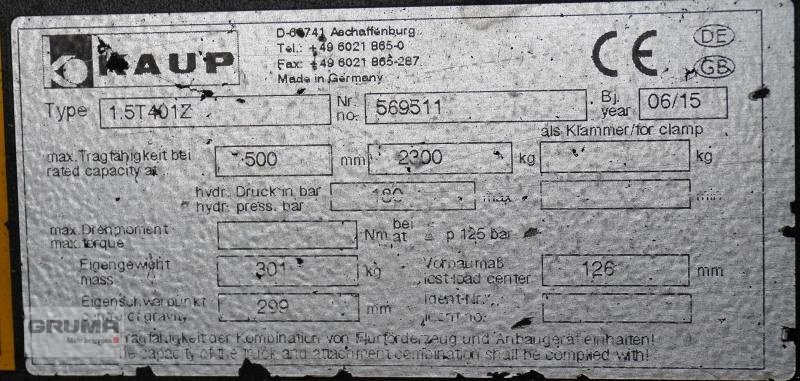 KAUP
D-63741 Aschaffenburg
Tel.: +49 6021 865-0
Fax: +49 6021 865-287
Made in Germany
CE
DE
GB
Type 1.5T401Z
Nr. no. 569511
Bj. year 06/15
als Klammer/for clamp
max. Tragfähigkeit bei
rated capacity at 500 mm 2300 kg kg
hydr. Druck in bar
hydr. press. bar max min
max. Drehmoment
max. torque Nm bei at p 125 bar
Eigengewicht
mass 301 kg
Vorbaumaß
lost load center 126 mm
Eigenschwerpunkt
centre of gravity 299 mm
Ident-Nr.
ident no.
Tragfähigkeit der Kombination von Flurförderzeug und Anbaugerät einhalten!
The capacity of the truck and attachment combination shall be complied with!
GRUMA
Mehr bewegen